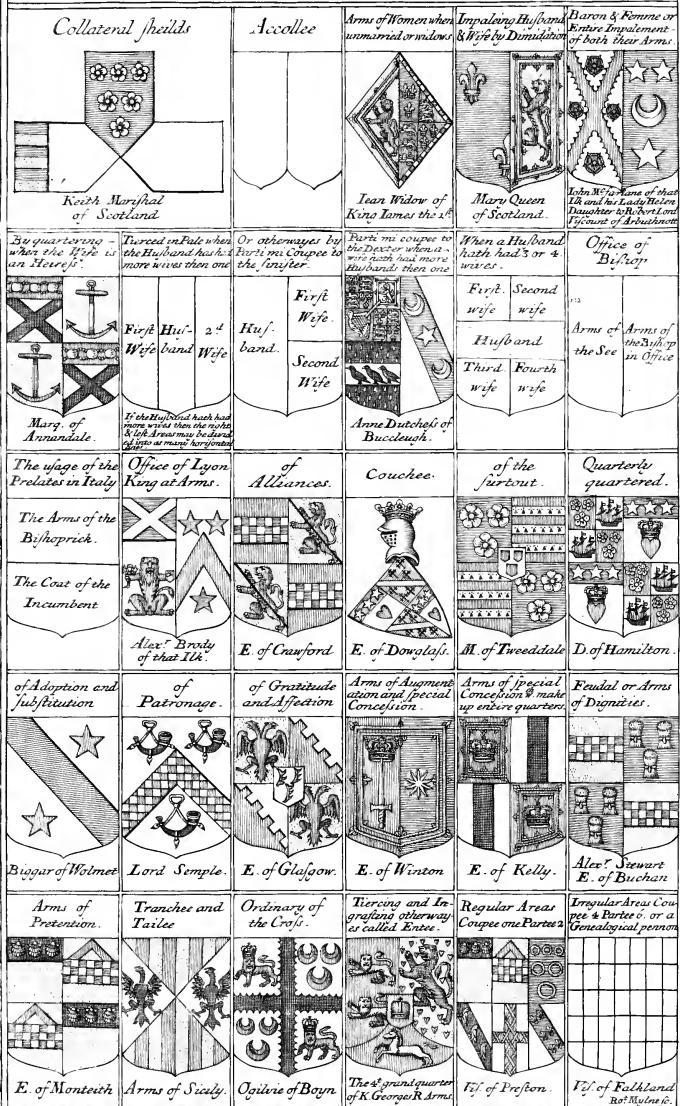 Collateral sheilds
Keith Marishal
of Scotland
Accollee
Arms of Women when
unmarried or widows
Iean Widow of
King Iames the 2d.
Impaleing Husband
& Wife by Dimidiation
Mary Queen
of Scotland.
Baron & Femme or
Entire Impalement
of both their Arms.
Iohn Mcfarlane of that
Ilk and his Lady Helen
Daughter to Robert Lord
Viscount of Arbuthnott
By quartering
when the Wife is
an Heiress.
Marq. of
Annandale.
Tierced in Pale when
the Husband has had
more wives then one
First Hus- 2d
Wife band Wife
If the Husband hath had
more wives then the right
& left Areas may be divid
ed into as many horizontal
lines
Or otherwayes by
Parti mi Coupee to
the sinister.
Hus-
band.
First
Wife.
Second
Wife
Parti mi coupee to
the Dexter when a
wife hath had more
Husbands then one
Anne Dutchess of
Buccleugh.
When a Husband
hath had 3 or 4
wives.
First Second
wife wife
Husband
Third Fourth
wife wife
Office of
Bishop
Arms of
the See
Arms of
the Bishop
in Office
The usage of the
Prelates in Italy
The Arms of the
Bishoprick.
The Coat of the
Incumbent
Office of Lyon
King at Arms.
Alexr. Brody
of that Ilk.
of
Alliances.
E. of Crawford
Couchee.
E. of Dowglass.
of the
surtout.
M. of Tweeddale
Quarterly
quartered.
D. of Hamilton.
of Adoption and
substitution
Biggar of Wolmet
of
Patronage.
Lord Semple.
of Gratitude
and Affection
E. of Glasgow.
Arms of Augment
ation and special
Concession.
E. of Winton
Arms of special
Concession & make
up entire quarters.
E. of Kelly.
Feudal or Arms
of Dignities.
Alexr. Stewart
E. of Buchan
Arms of
Pretention.
E. of Monteith
Tranchee and
Tailee
Arms of Sicily.
Ordinary of
the Cross.
Ogilvie of Boyn
Tiercing and In-
grafting otherway-
es called Entee.
The 4t. grand quarter
of K. Georges R. Arms.
Regular Areas
Coupee one Partee 2
Vis. of Preston.
Irregular Areas Cou-
pee 4 Partee 6. or a
Genealogical pennon
Vis. of Falkland
Rot. Mylne sc.